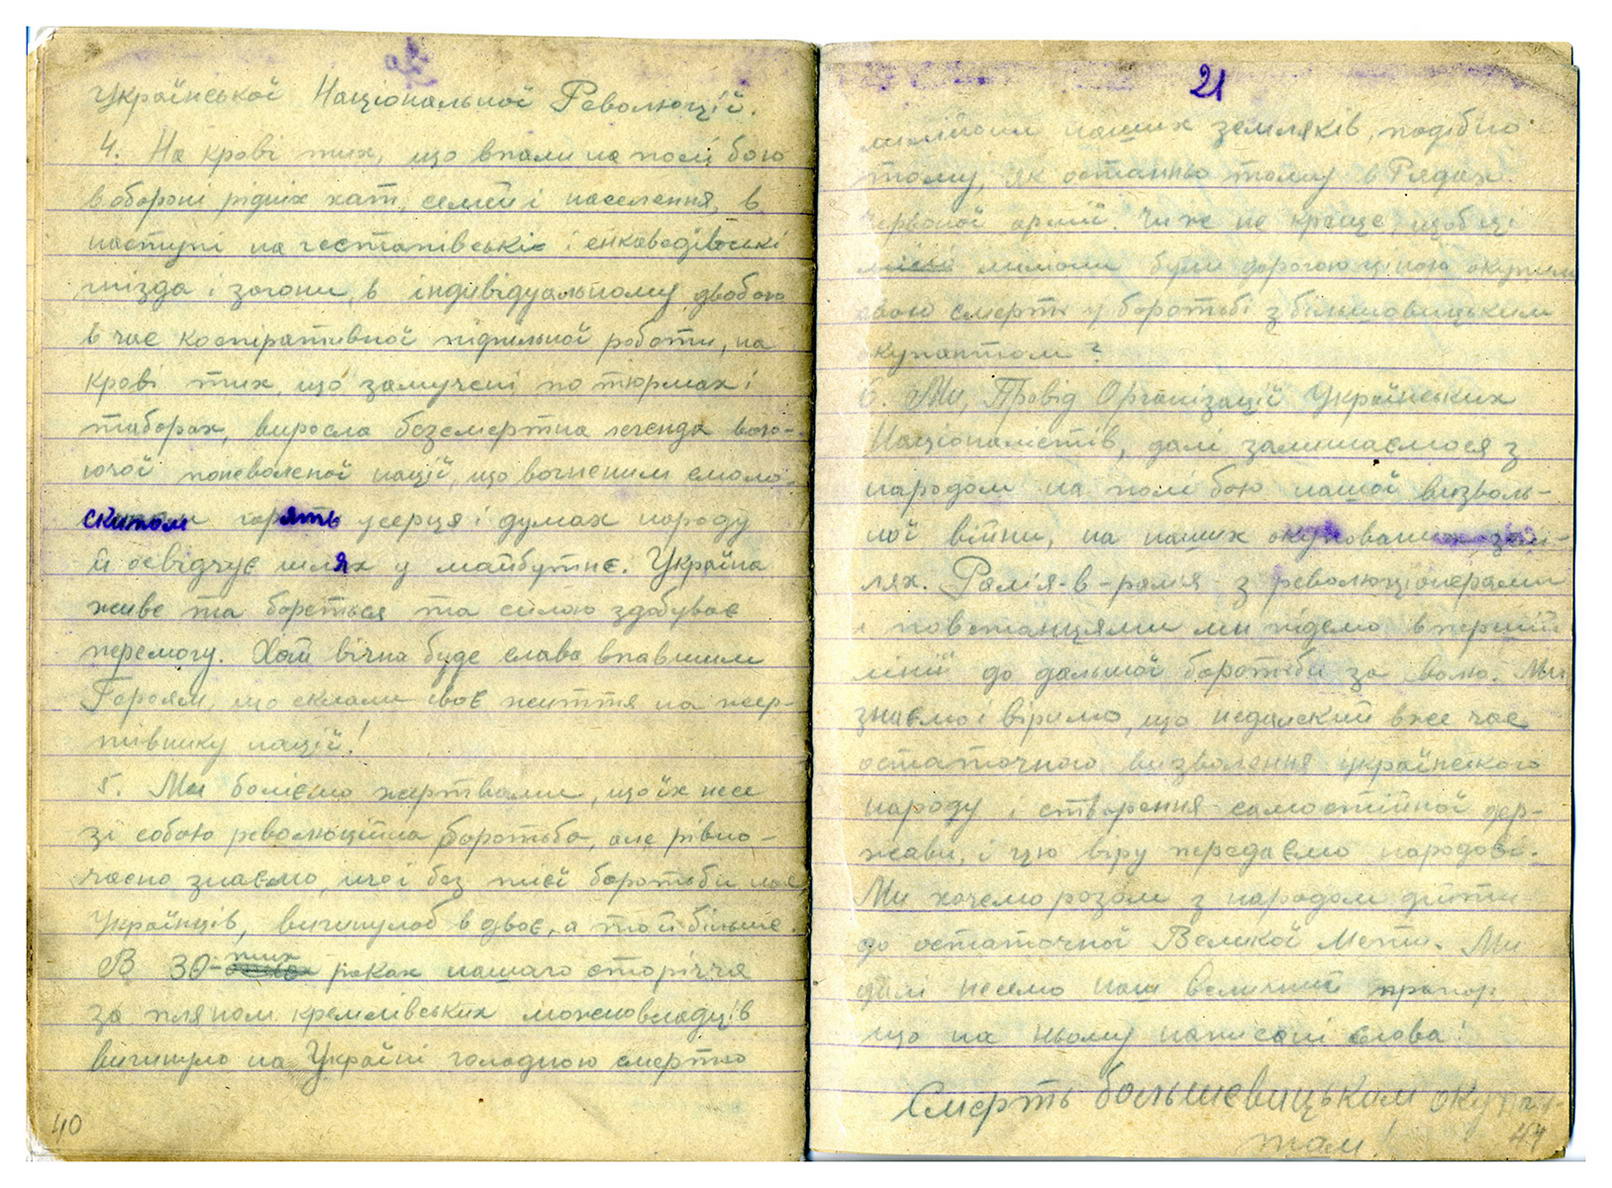 Української Національної Революції.
4. На крові тих, що впали на полі бою
в обороні рідніх хат, семей і населення, в
наступі на гестапівські і енкаведівські
гнізда і загони, в індивідуальному двобою
в час коспіративної підпільної роботи, на
крові тих, що замучені по тюрмах і
таборах, виросла безсмертна легенда вою-
ючої поневоленої нації, що вогненим смоло-
скипом горять у серця і думах народу
й освідчує шлях у майбутнє. Україна
живе та бореться та силою здобуває
перемогу. Хай вічна буде слава впавшим
Героям, що склали своє життя на жер-
тівнику нації!
5. Ми боліємо жертвами, що їх несе
зі собою революційна боротьба, але рівно-
часно знаємо, що і без тиєї боротьби нас
Українців, вигинулоб в двоє, а то й більше.
В 30-тих роках нашаго сторіччя
за пляном кремлівських можновладців
вигинуло на Україні голодною смертю
40
21
мілійони наших земляків, подібно
тому, як останньо тому в Рядах
Червоної армії. Чи ж не краще, щоб ці
мілійони були дорогою ціною окупили
свою смерть у боротьбі з більшовицьким
окупантом?
6. Ми, Провід Організації Українських
Націоналістів, далі залишаємося з
народом на полі бою нашої визволь-
ної війни, на наших окупованих зем-
лях. Рамя-в-рамя з революціонерами
і повстанцями ми підемо в першій
лінії до дальшої боротьби за волю. Ми
знаємо і віримо, що недалекий вже час
остаточного визволення українского
народу і створення самостійної дер-
жави, і цю віру передаємо народові.
Ми хочемо розом з народом дійти
до остаточної Великої Мети. Ми
далі несемо наш величний прапор,
що на ньому написані слова:
Смерть большевицьким окупан-
там!
41